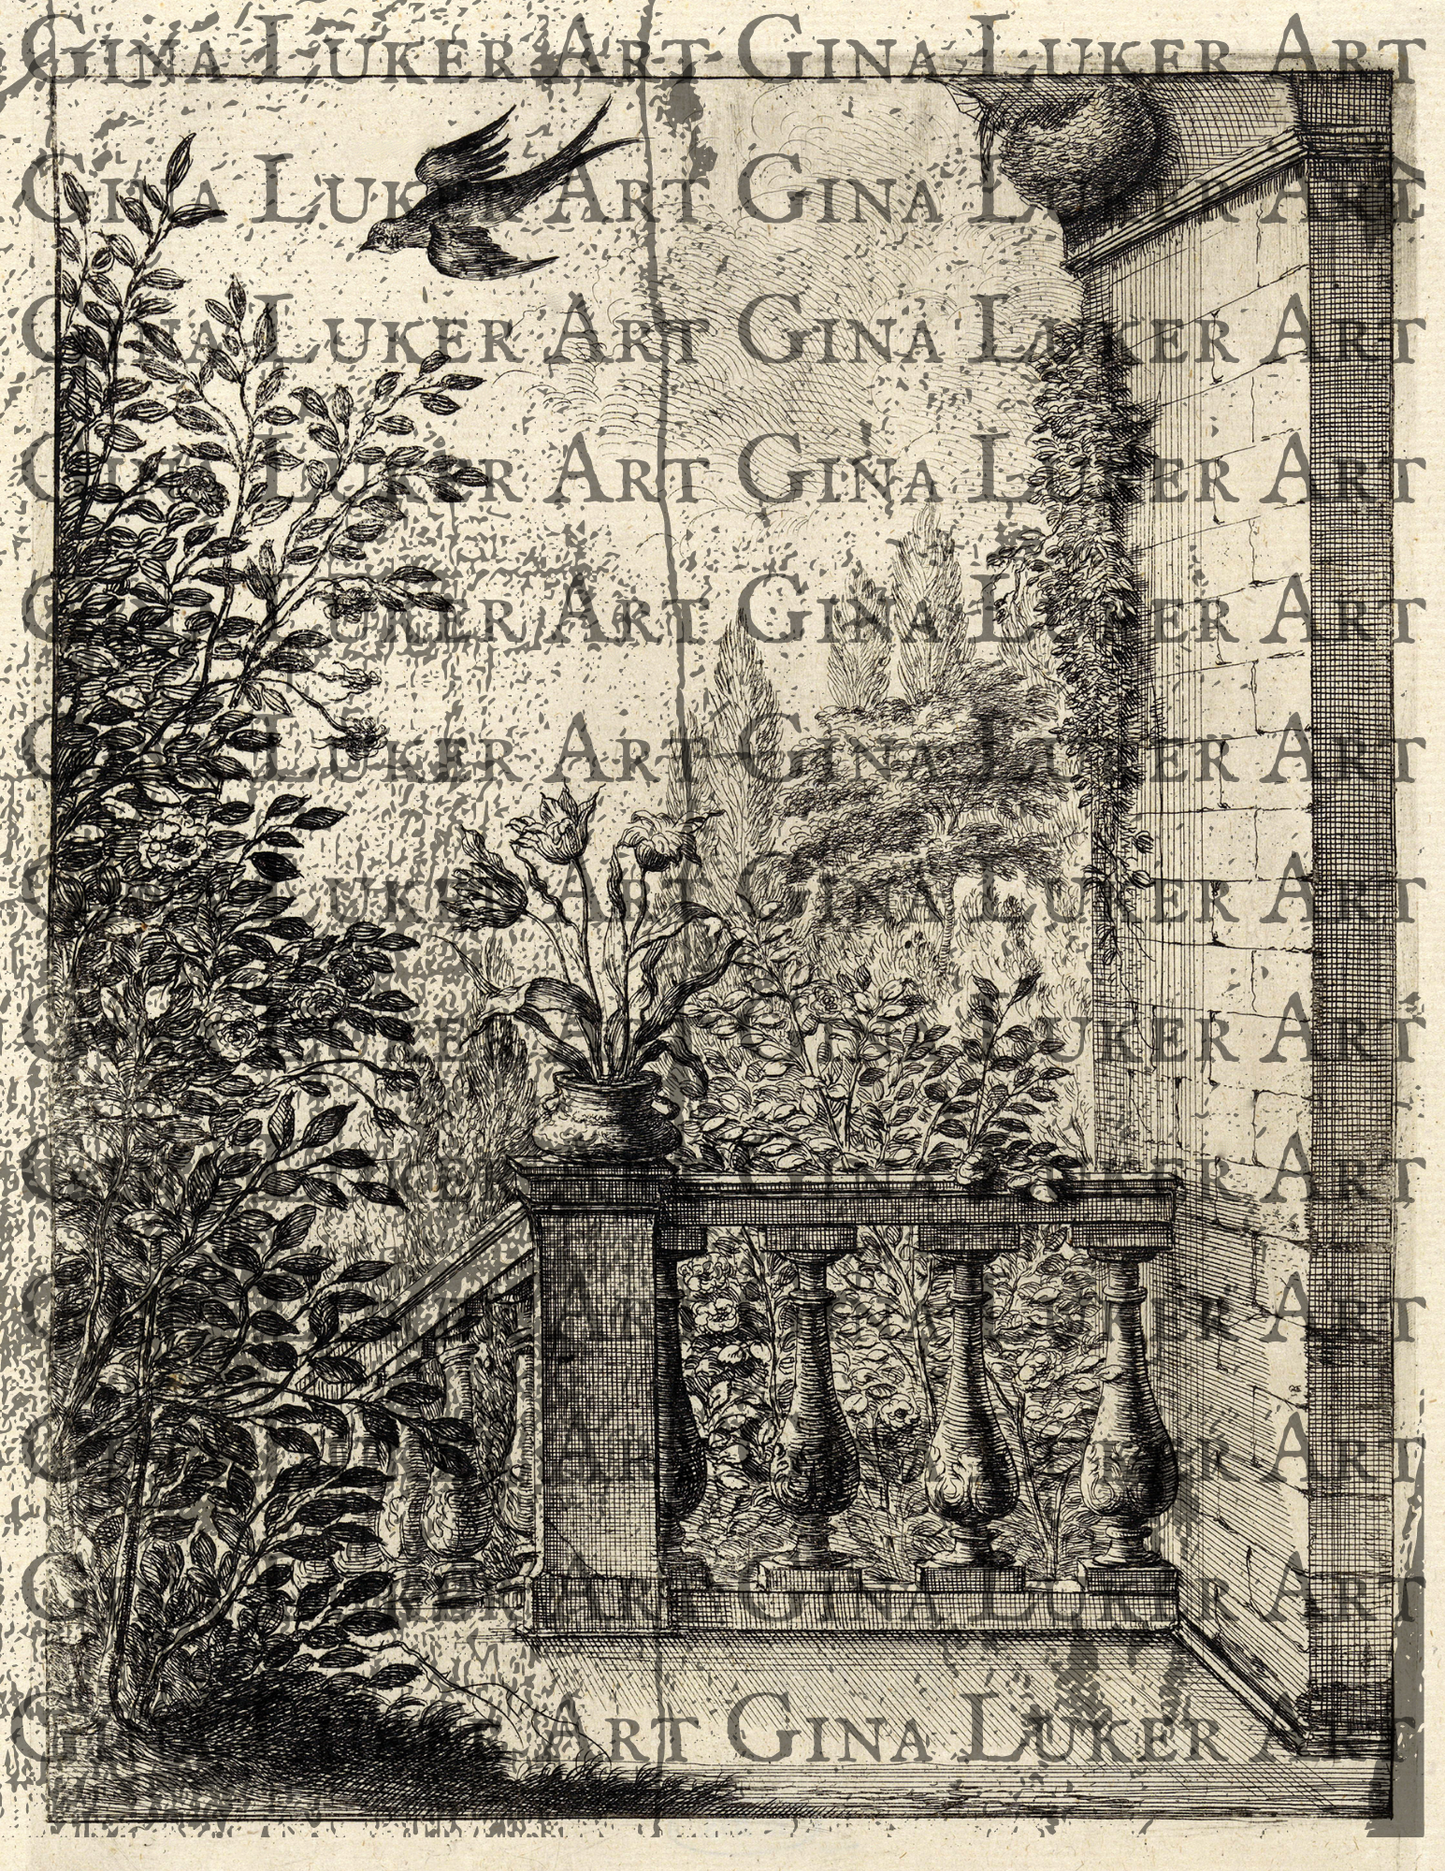 Gina Luker Art Gina Luker Art
Gina Luker Art Gina Luker Art
Gina Luker Art Gina Luker Art
Gina Luker Art Gina Luker Art
Gina Luker Art Gina Luker Art
Gina Luker Art Gina Luker Art
Gina Luker Art Gina Luker Art
Gina Luker Art Gina Luker Art
Gina Luker Art Gina Luker Art
Gina Luker Art Gina Luker Art
Gina Luker Art Gina Luker Art
Gina Luker Art Gina Luker Art
Gina Luker Art Gina Luker Art